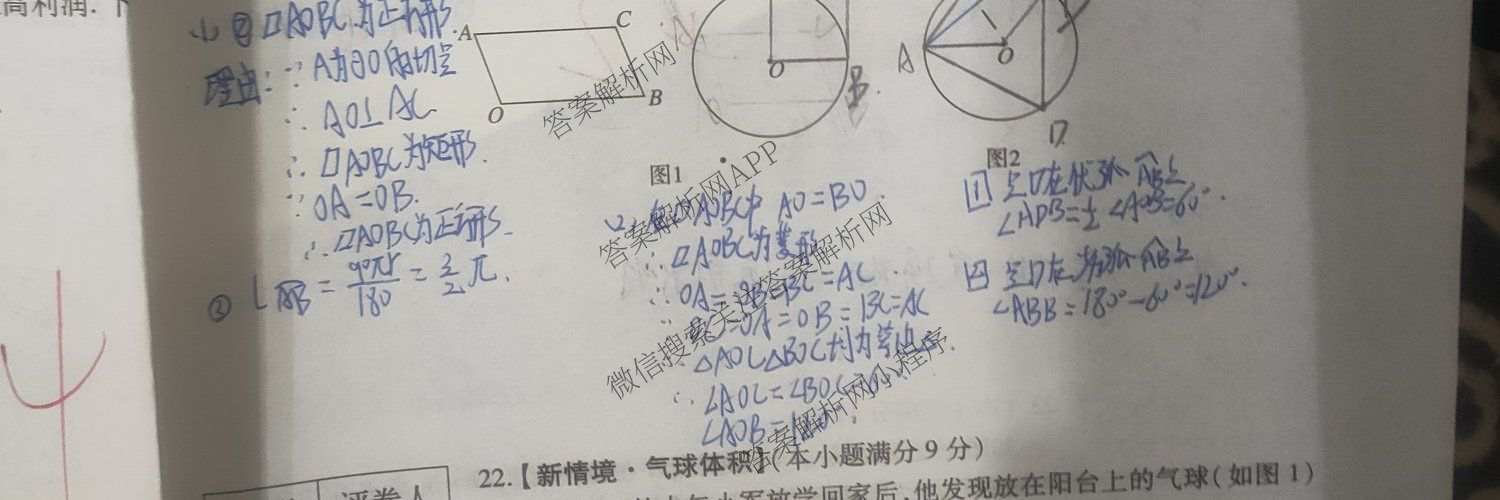 高利润.
(1) ① □AOBC为正方形.
理由: ∵ A为⊙O的切点
∴ AO⊥AC
∴ □AOBC为矩形.
∵ OA=OB.
∴ □AOBC为正方形.
② L AB = 90πr/180 = 3/2 π.
A
C
O
B
O
B.
A
O
D
图1
图2
AOBC中 AO=BO.
∴ □AOBC为菱形
∴ OA=OB=BC=AC.
OC=OA=OB=BC=AC
△AOC △BOC均为等边△.
∴ ∠AOC=∠BOC
∠AOB=
点D在优弧AB上
∠ADB=½∠AOB=60°.
点D在劣弧AB上
∠ABB=180°-60°=120°.
答案解析网
答案解析网APP
微信搜索关注答案解析网
答案解析网小程序
评卷人
22.【新情境·气球体积】(本小题满分9分)
小军放学回家后,他发现放在阳台上的气球(如图1)